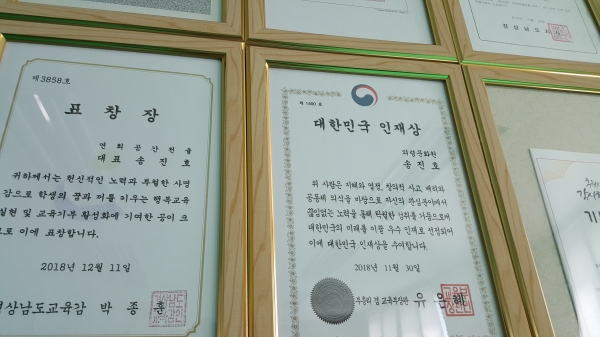 제3858호
표 창 장
연희공간천율
대표 송진호
귀하께서는 헌신적인 노력과 투철한 사명
감으로 학생의 꿈과 끼를 키우는 행복교육
실현 및 교육기부 활성화에 기여한 공이 크
므로 이에 표창합니다.
2018년 12월 11일
경상남도교육감 박 종 훈
제 1480 호
대한민국 인재상
의령문화원
송진호
위 사람은 지혜와 열정, 창의적 사고, 배려의
공동체 의식을 바탕으로 자신의 관심분야에서
끊임없는 노력을 통해 탁월한 성취를 거둠으로써
대한민국의 미래를 이끌 우수 인재로 선정되어
이에 대한민국 인재상을 수여합니다.
2018년 11월 30일
부총리 겸 교육부장관 유 은 혜
경상남도지사